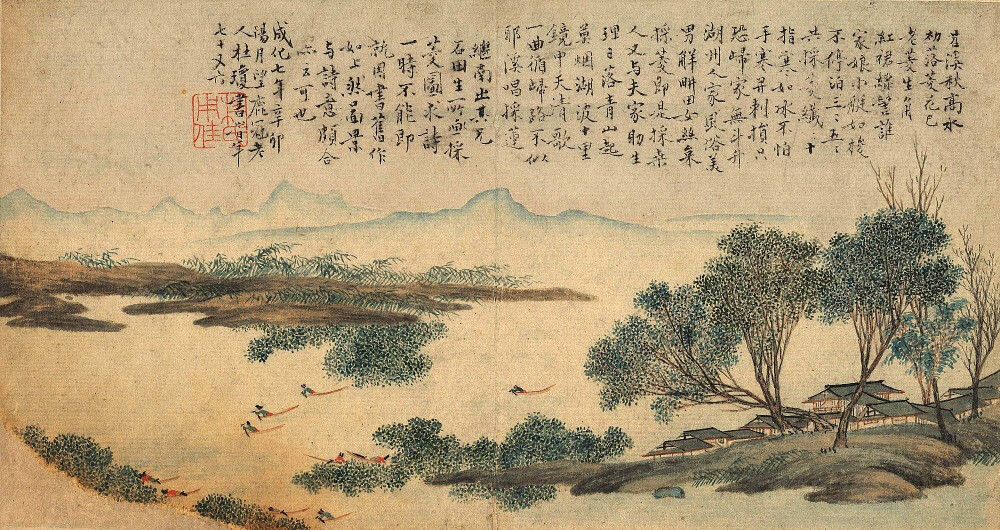 苕溪秋高水
初落菱花已
老菱生角
紅裙綠髻誰
家娘小艇如梭
不停泊三〻五〻
共採菱纖〻十
指寒如冰不怕
手寒并刺損只
恐歸家無斗升
湖州人家風俗美
男解耕田女絲枲
採菱即是採桑
人又与夫家助生
理日落青山起
莫烟湖波十里
鏡中天清歌
一曲循歸路不似
耶溪唱採蓮
繼南出其兄
石田生所画採
菱圖求詩
一時不能即
就因書舊作
如上然畫景
与詩意頗合
亦可也
成化七年辛卯
陽月望鹿冠老
人杜瓊書時年
七十又六